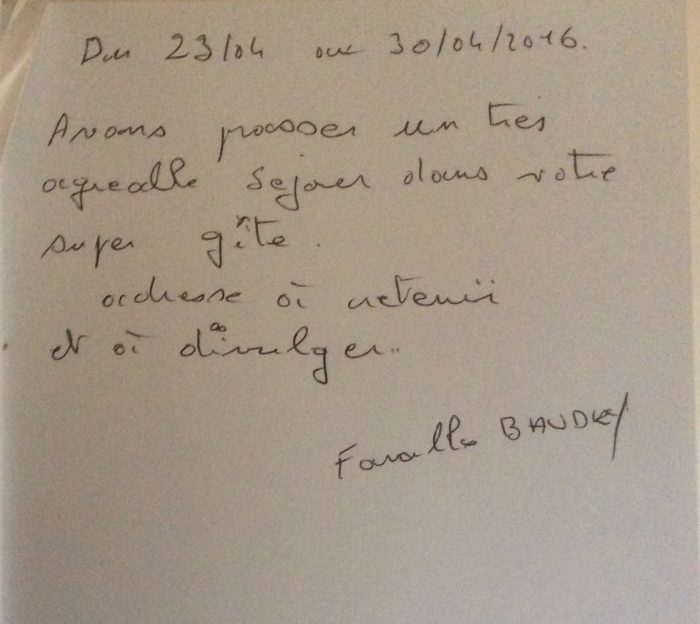 Du 23/04 au 30/04/2016.
Avons passer un très
agreable sejour dans votre
super gîte.
adresse à retenir
et à divulger..
Famille BAUDRY